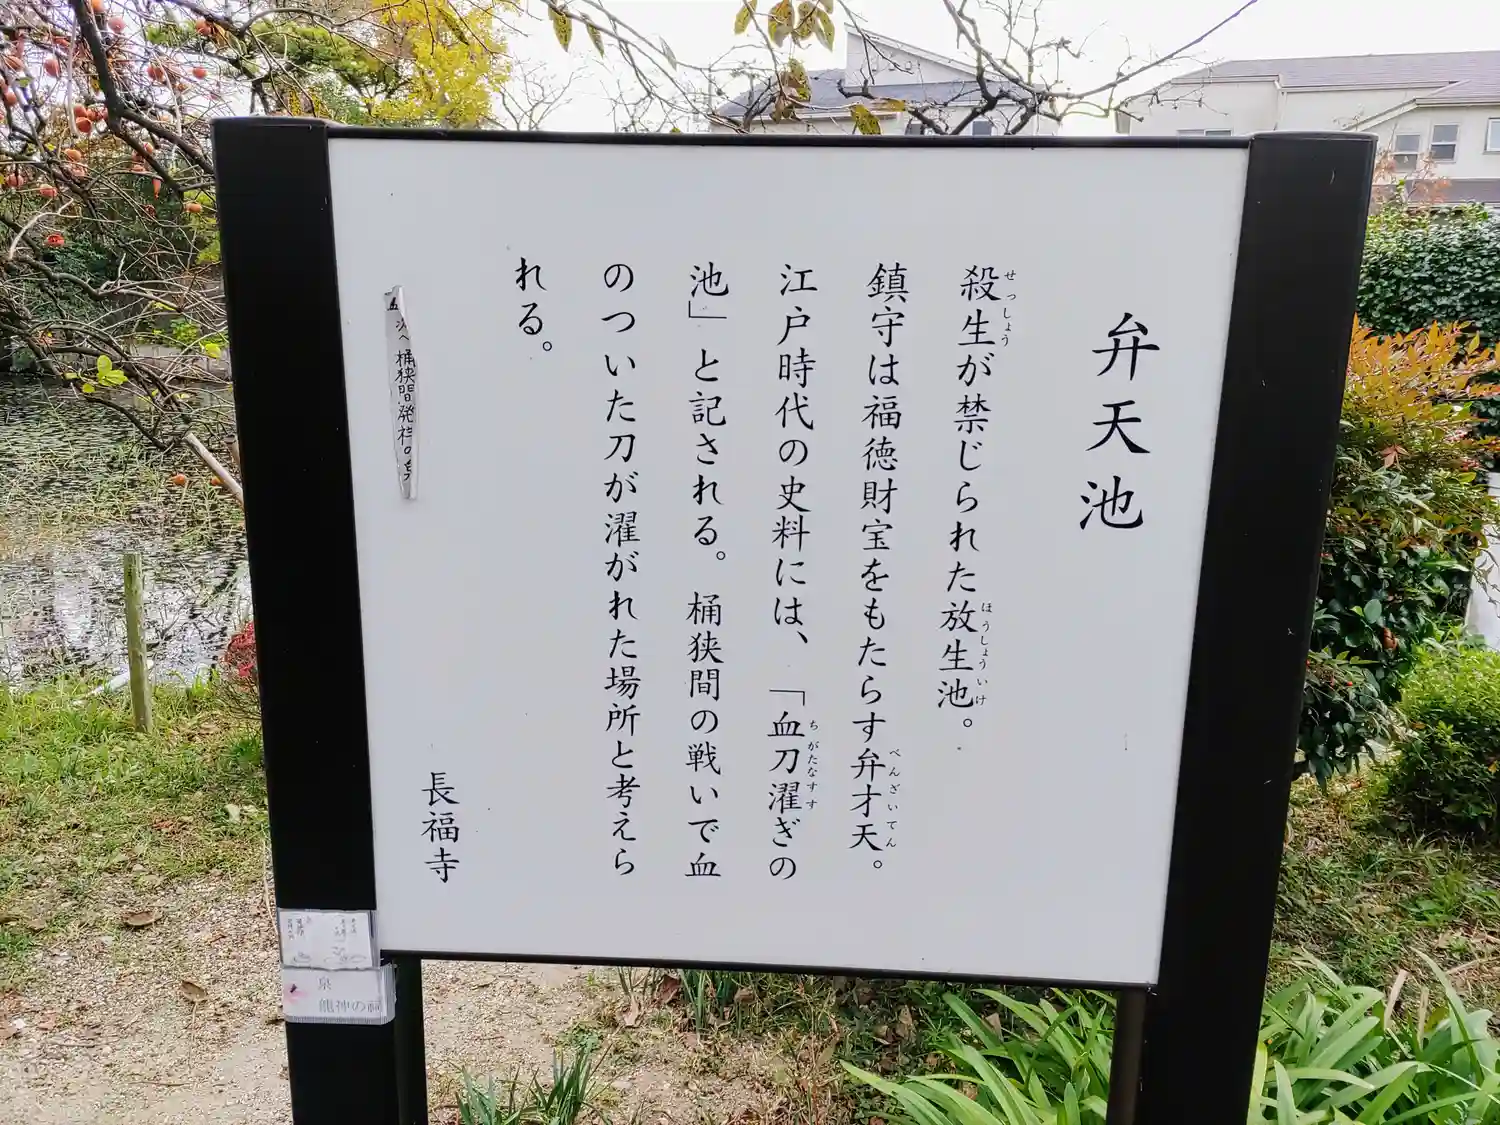 弁天池
殺生が禁じられた放生池。
せっしょう
ほうしょういけ
鎮守は福徳財宝をもたらす弁才天。
べんざいてん
江戸時代の史料には、「血刀濯ぎの
ちがたなすす
池」と記される。桶狭間の戦いで血
のついた刀が濯がれた場所と考えら
れる。
長福寺
桶狭間発祥の
泉
龍神の祠